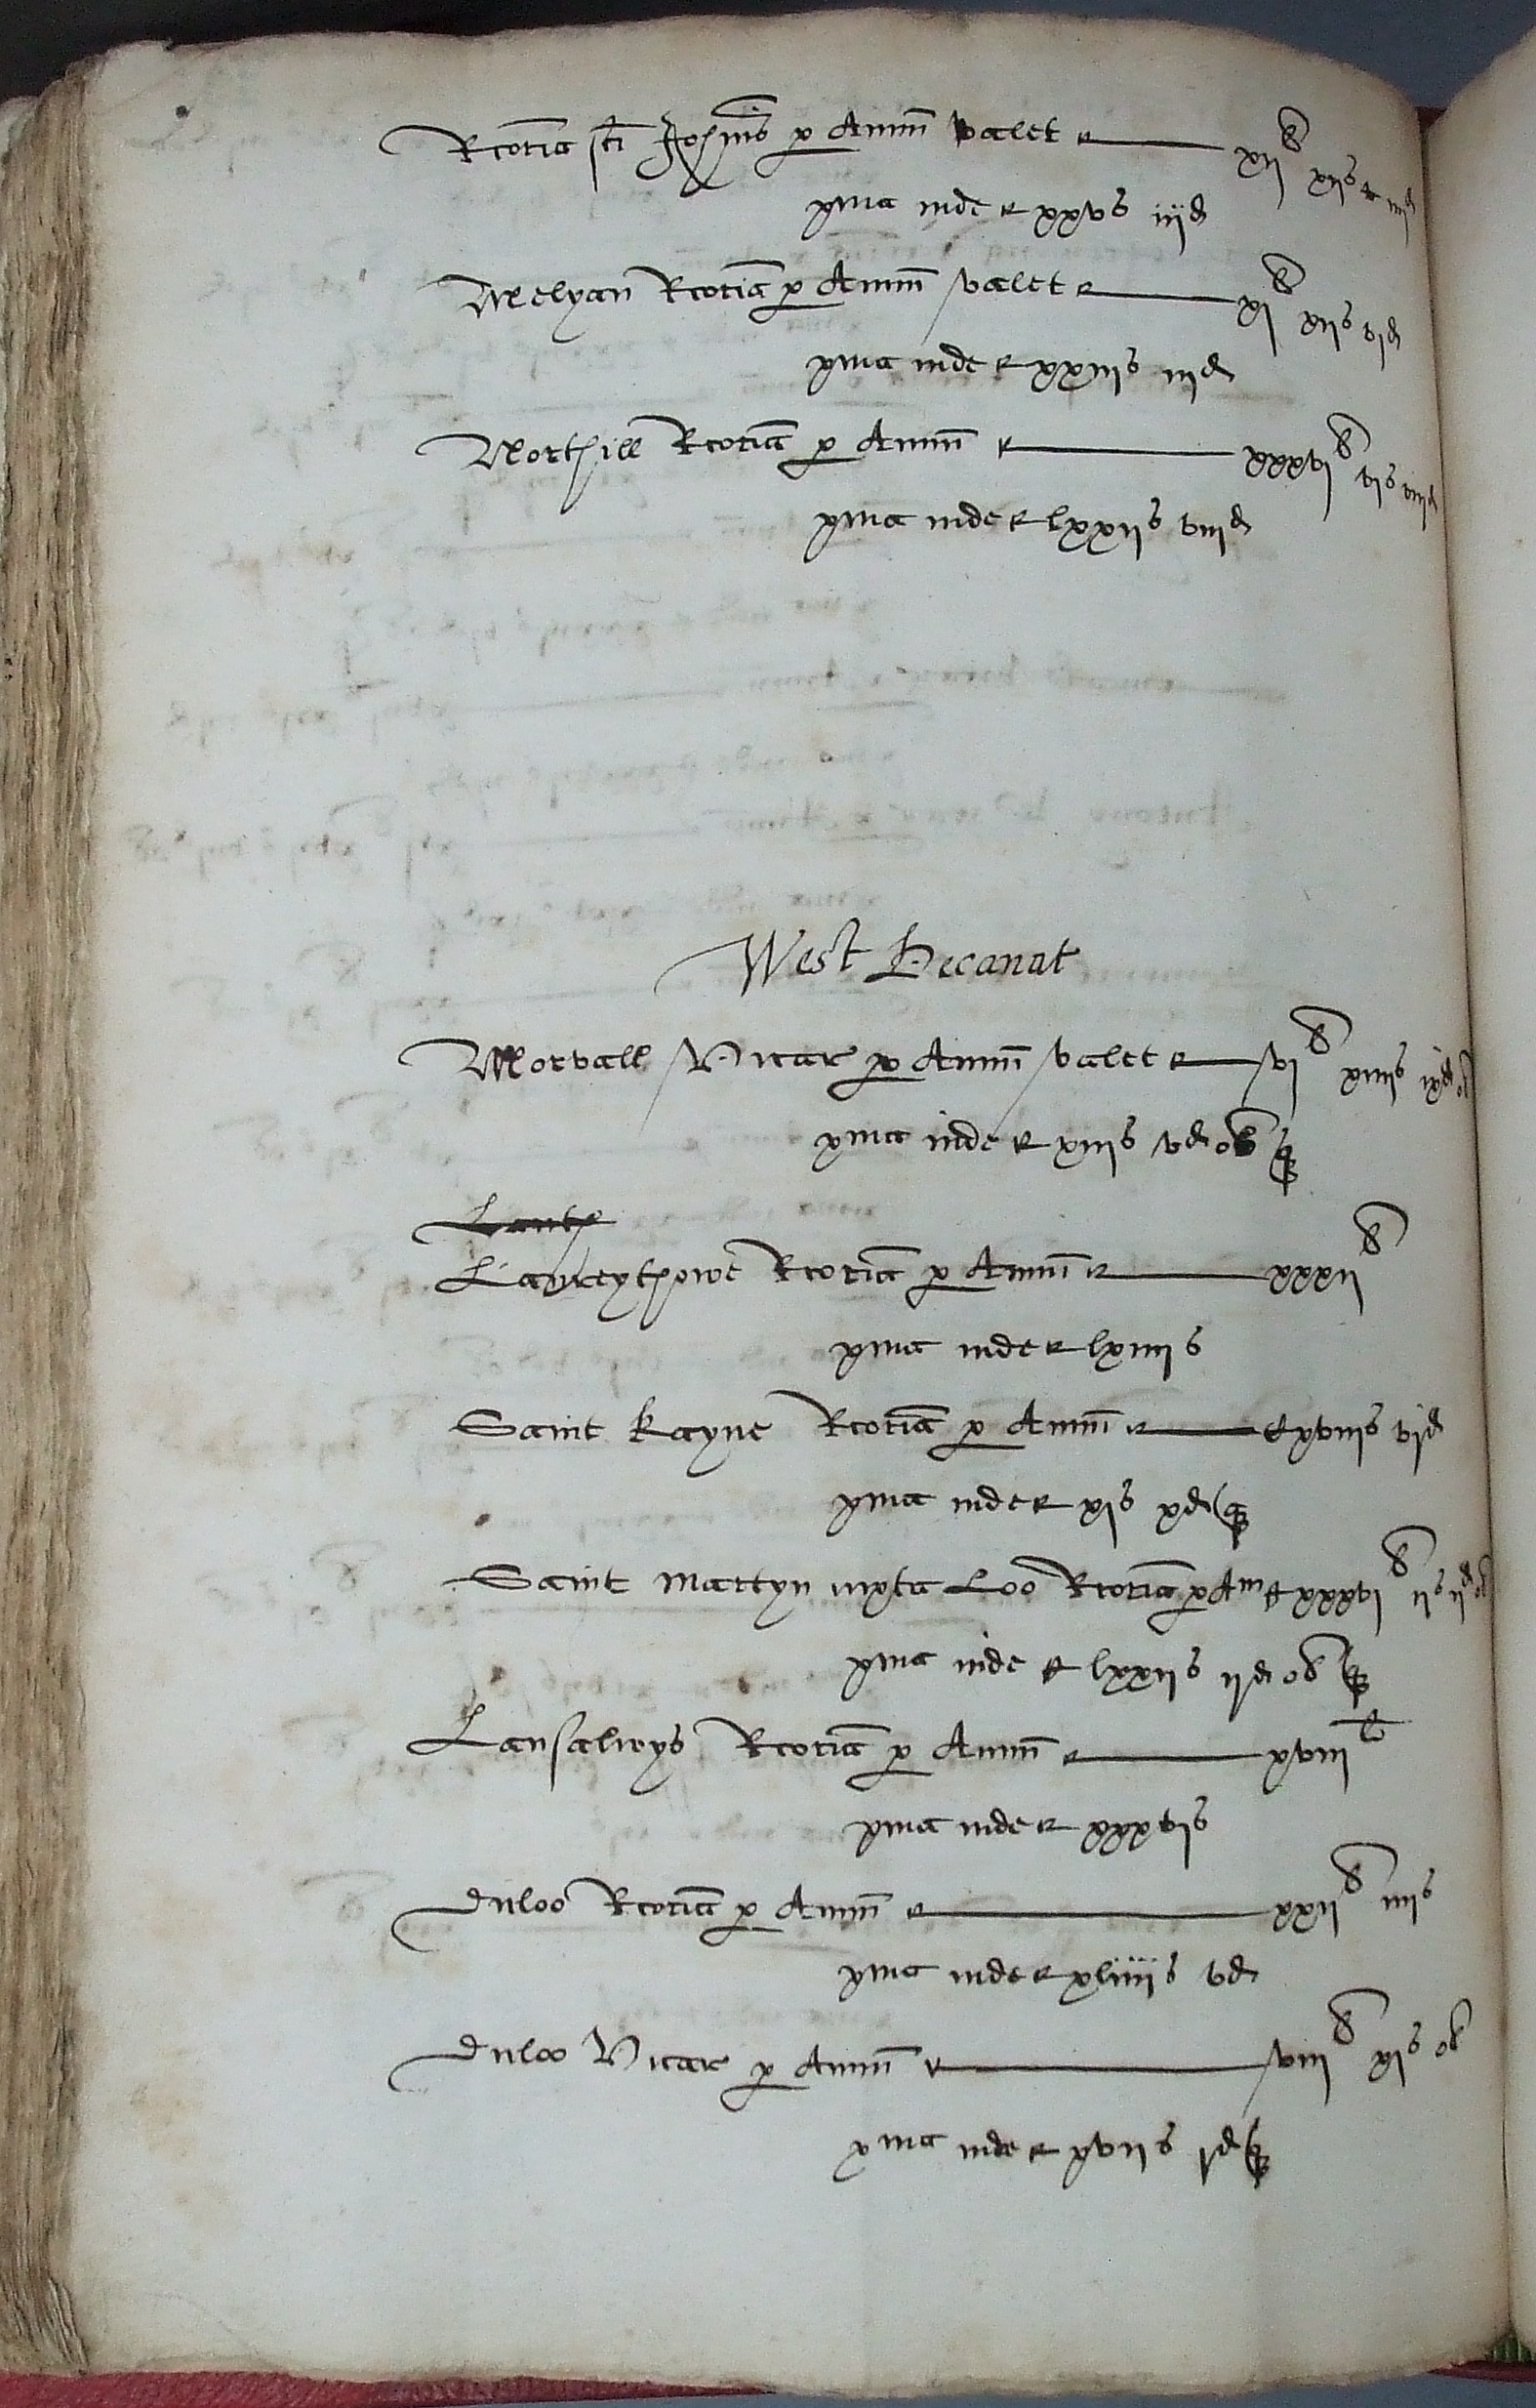 Rcoria scti Joh̃nis p Annũ valet — xij li xijs iiijd
xma inde xxvs iijd
Melyan Rcoria p Annũ valet — xj li xijs vjd
xma inde xxiijs iijd
Northill Rcoria p Annũ — xxxvj li vjs viijd
xma inde lxxijs viijd
West Decanat
Morvall Vicar p Annũ valet — vj li xiiijs ixd ob
xma inde xiijs vd ob q
Lanteythowe Rcoria p Annũ — xxxij li
xma inde lxiiijs
Saint Kayne Rcoria p Annũ — cxviijs vjd
xma inde xjs xd q
Saint Martyn iuxta Loo Rcoria p Am xxxvj li ijs ijd ob
xma inde lxxijs ijd ob q
Lansalwys Rcoria p Annũ — xviij li
xma inde xxxvjs
Duloo Rcoria p Annũ — xxij li iiijs
xma inde xliiijs vd
Duloo Vicar p Annũ — viij li xjs ob
xma inde xvijs jd q